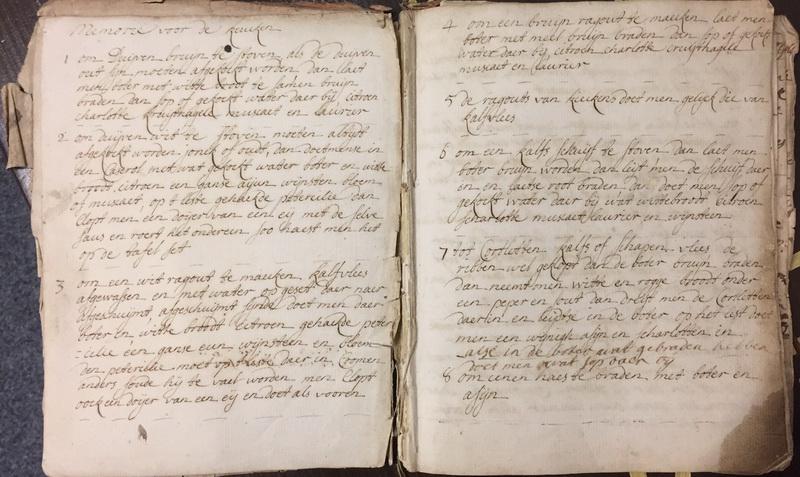 Memorie voor de keuken
1 om Duijven bruijn te stoven als de duijven
out sijn moeten afgekoft worden dan laet
men boter met witte broot te samen bruijn
braden dan sop of gekoft water daer bij citroen
charlotte kruijtnagle muscaet en laurier
2 om duijven wit te stoven moeten altijt
afgekoft worden jonck of oudt, dan doetmense in
een Caserol met wat gekoft water boter en witte
broodt, citroen een ganse aijun wijnsten bloem
of muscaet, op t leste gehackte petercelie dan
Clopt men een doijer van een eij met de selve
saus en roert het ondereen soo haest men het
op de tafel set
3 om een wit ragout te maeken kalfvlees
afgewassen en met water op geset daer naer
afgeschuijmt, afgeschuijmt sijnde doet men daer
boter en witte broodt citroen gehackte peter
=celie een ganse eun wijnsteen en bloem
den petercelie moet op t leste daer in Comen
anders soude hij te vael worden men Clopt
oock een doijer van een eij en doet als vooren
4 om een bruijn ragout te maeken laet men
boter met meel bruijn braden dan sop of gekoft
water daer bij citroen charlotte cruijtnagle
muscaet en laurier
5 de ragouts van kieckens doet men gelijck die van
kalfvlees
6 om een kalfs schuijf te stoven dan laet men
boter bruijn worden dan leijt men de schuijf daer
en en laetse root braden dan doet men sop of
gekoft water daer bij wat wittebroodt citroen
scharlotte muscaet laurier en wijnsteen
7 tot Cortletten kalfs of schapen vlees de
ribben wel geklopt dan de boter bruijn braden
dan neemt men witte en rogge broodt onder
een peper en sout dan dreijft men de Cortletten
daerin en leijdtse in de boter op het lest doet
men een weijnigh asijn en charlotten en
alse in de boter wat gebraden hebben
doet men wat sop over bij
8 om eenen haes te braden met boter en
asijn